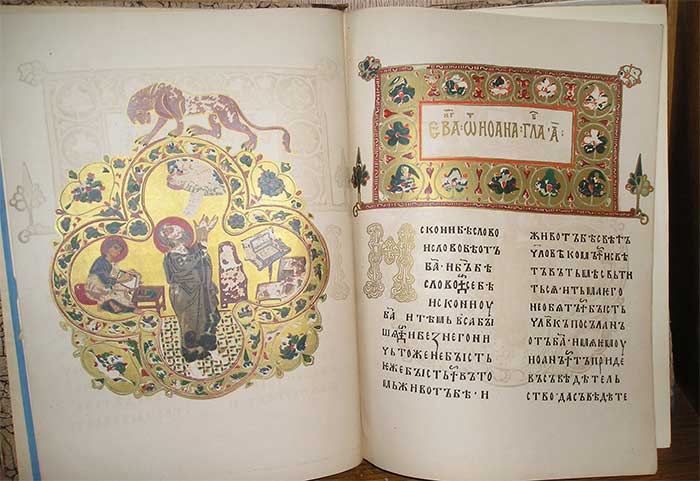 ЕВА · Ѿ ИОАНА · ГЛА · А҃ :
ИСКОНИБѢСЛОВО
ИСЛОВОБѢОТЪ
Б҃А · ИБ҃ЪБѢ
СЛОВОСЕБѢ
ИСКОНИОУ
Б҃А ИТѢМЬВСАБЫ
ШѦИБЕЗНЕГОНИ
ЧЬТОЖЕНЕБЫСТЬ
ЕЖЕБЫСТЬВЪТО
МЬЖИВОТЪБѢ · И
ЖИВОТЪБѢСВѢТЪ
ЧЛОВѢКОМЪИСВѢ
ТЪВЪТЬМѢСВЬТИ
ТЬСѦ · ИТЬМАѤГО
НЕОБѦТЪБЫСТЬ
ЧЛ҃ВКЪПОСЪЛАНЪ
ОТЪБ҃А · ИМѦѤМОУ
ИОАНЪТЪПРИДЕ
ВЪСЪВѢДѢТЕЛЬ
СТВО · ДАСЪВѢДѢТЕ